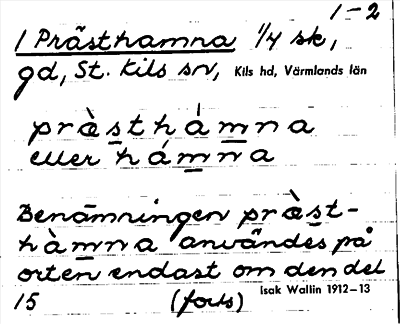 1–2
1 Prästhamna 1/4 sk,
gd, St. Kils sn, Kils hd, Värmlands län
præ̀sthámna
eller hámna
Benämningen præ̀st-
hàmna användes på
orten endast om den del
15 (forts) Isak Wallin 1912–13